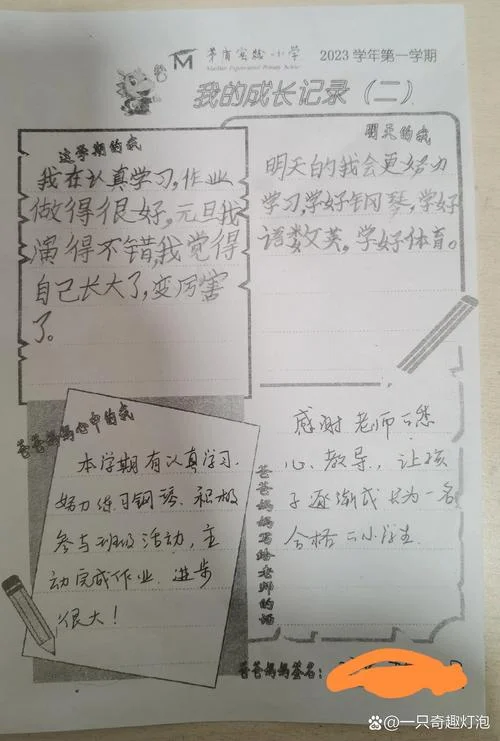 茅盾实验小学
2023 学年第一学期
我的成长记录（二）
这学期的我
我在认真学习,作业
做得很好,元旦我
演得不错,我觉得
自己长大了,变厉害
了。
明天的我
明天的我会更努力
学习,学好钢琴,学好
语数英。学好体育。
爸爸妈妈心中的我
本学期有认真学习.
努力练习钢琴、积极
参与班级活动,主
动完成作业.进步
很大!
爸爸妈妈写给老师的话
感谢老师
心教导,让孩
子逐渐成长为一名
合格 小学生.
爸爸妈妈签名：
百家号@一只奇趣灯泡